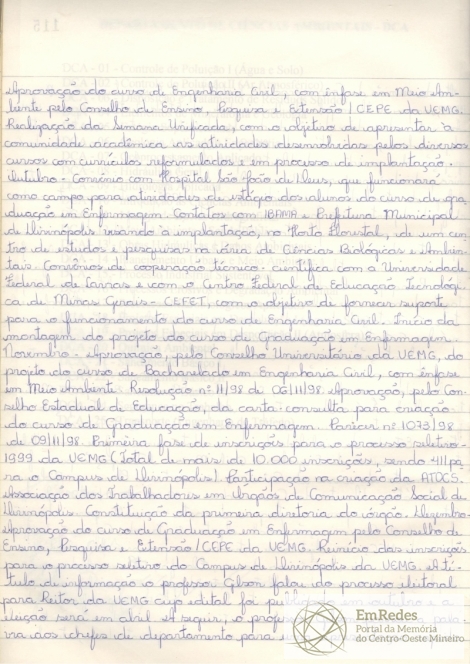 115
DCA - 01 - Controle de Poluição I (Água e Solo)
Aprovação do curso de Engenharia Civil, com ênfase em Meio Am-
biente pelo Conselho de Ensino, Pesquisa e Extensão / CEPE da UEMG.
Realização da Semana Unificada, com o objetivo de apresentar à
comunidade acadêmica as atividades desenvolvidas pelos diversos
cursos com currículos reformulados e em processo de implantação.
Outubro - Convênio com Hospital São João de Deus, que funcionará
como campo para atividades de estágio dos alunos do curso de gra-
duação em Enfermagem. Contatos com IBAMA e Prefeitura Municipal
de Divinópolis visando à implantação, no Horto Florestal, de um cen-
tro de estudos e pesquisas na área de Ciências Biológicas e Ambien-
tais. Convênios de cooperação técnico-científica com a Universidade
Federal de Lavras e com o Centro Federal de Educação Tecnológi-
ca de Minas Gerais - CEFET, com o objetivo de fornecer suporte
para o funcionamento do curso de Engenharia Civil. Início da
montagem do projeto do curso de Graduação em Enfermagem.
Novembro - Aprovação, pelo Conselho Universitário da UEMG, do
projeto do curso de Bacharelado em Engenharia Civil, com ênfase
em Meio Ambiente. Resolução nº 11/98 de 06/11/98. Aprovação, pelo Con-
selho Estadual de Educação, da carta-consulta para criação
do curso de Graduação em Enfermagem. Parecer nº 1073/98
de 09/11/98. Primeira fase de inscrições para o processo seletivo -
1999 da UEMG (Total de mais de 10.000 inscrições, sendo 411 pa
ra o Campus de Divinópolis) Participação na criação da ATOCS.
Associação dos Trabalhadores em Órgãos de Comunicação Social de
Divinópolis. Constituição da primeira diretoria do órgão. Dezembro-
Aprovação do curso de Graduação em Enfermagem pelo Conselho de
Ensino, Pesquisa e Extensão / CEPE da UEMG. Reinício das inscrições
para o processo seletivo do Campus de Divinópolis da UEMG. A tí-
tulo de informação o professor Gilson falou do processo eleitoral
para Reitor da UEMG cujo edital foi em outubro e a
eleição será em abril. A seguir, o
vra aos chefes de departamento para
EmRedes
Portal da Memória
do Centro-Oeste Mineiro